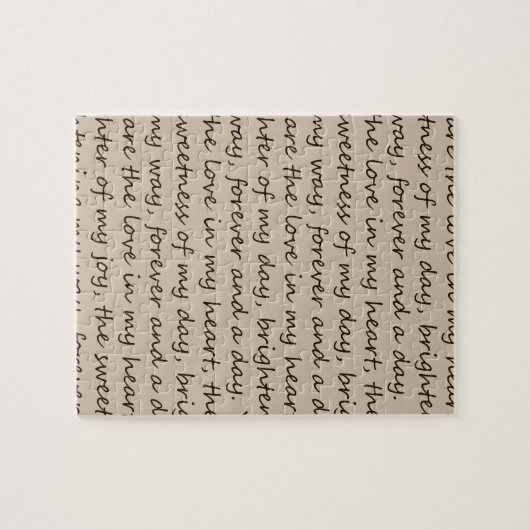 are the love in my hear
tness of my day, brighte
way, forever and a day.
the love in my heart, the
sweetness of my day, bri
my way, forever and a d
are the love in my hear
hter of my day, brighten
way, forever and a day.
the love in my heart, the
sweetness of my day, bri
my way, forever and a d
are the love in my hear
hter of my joy, the sweet